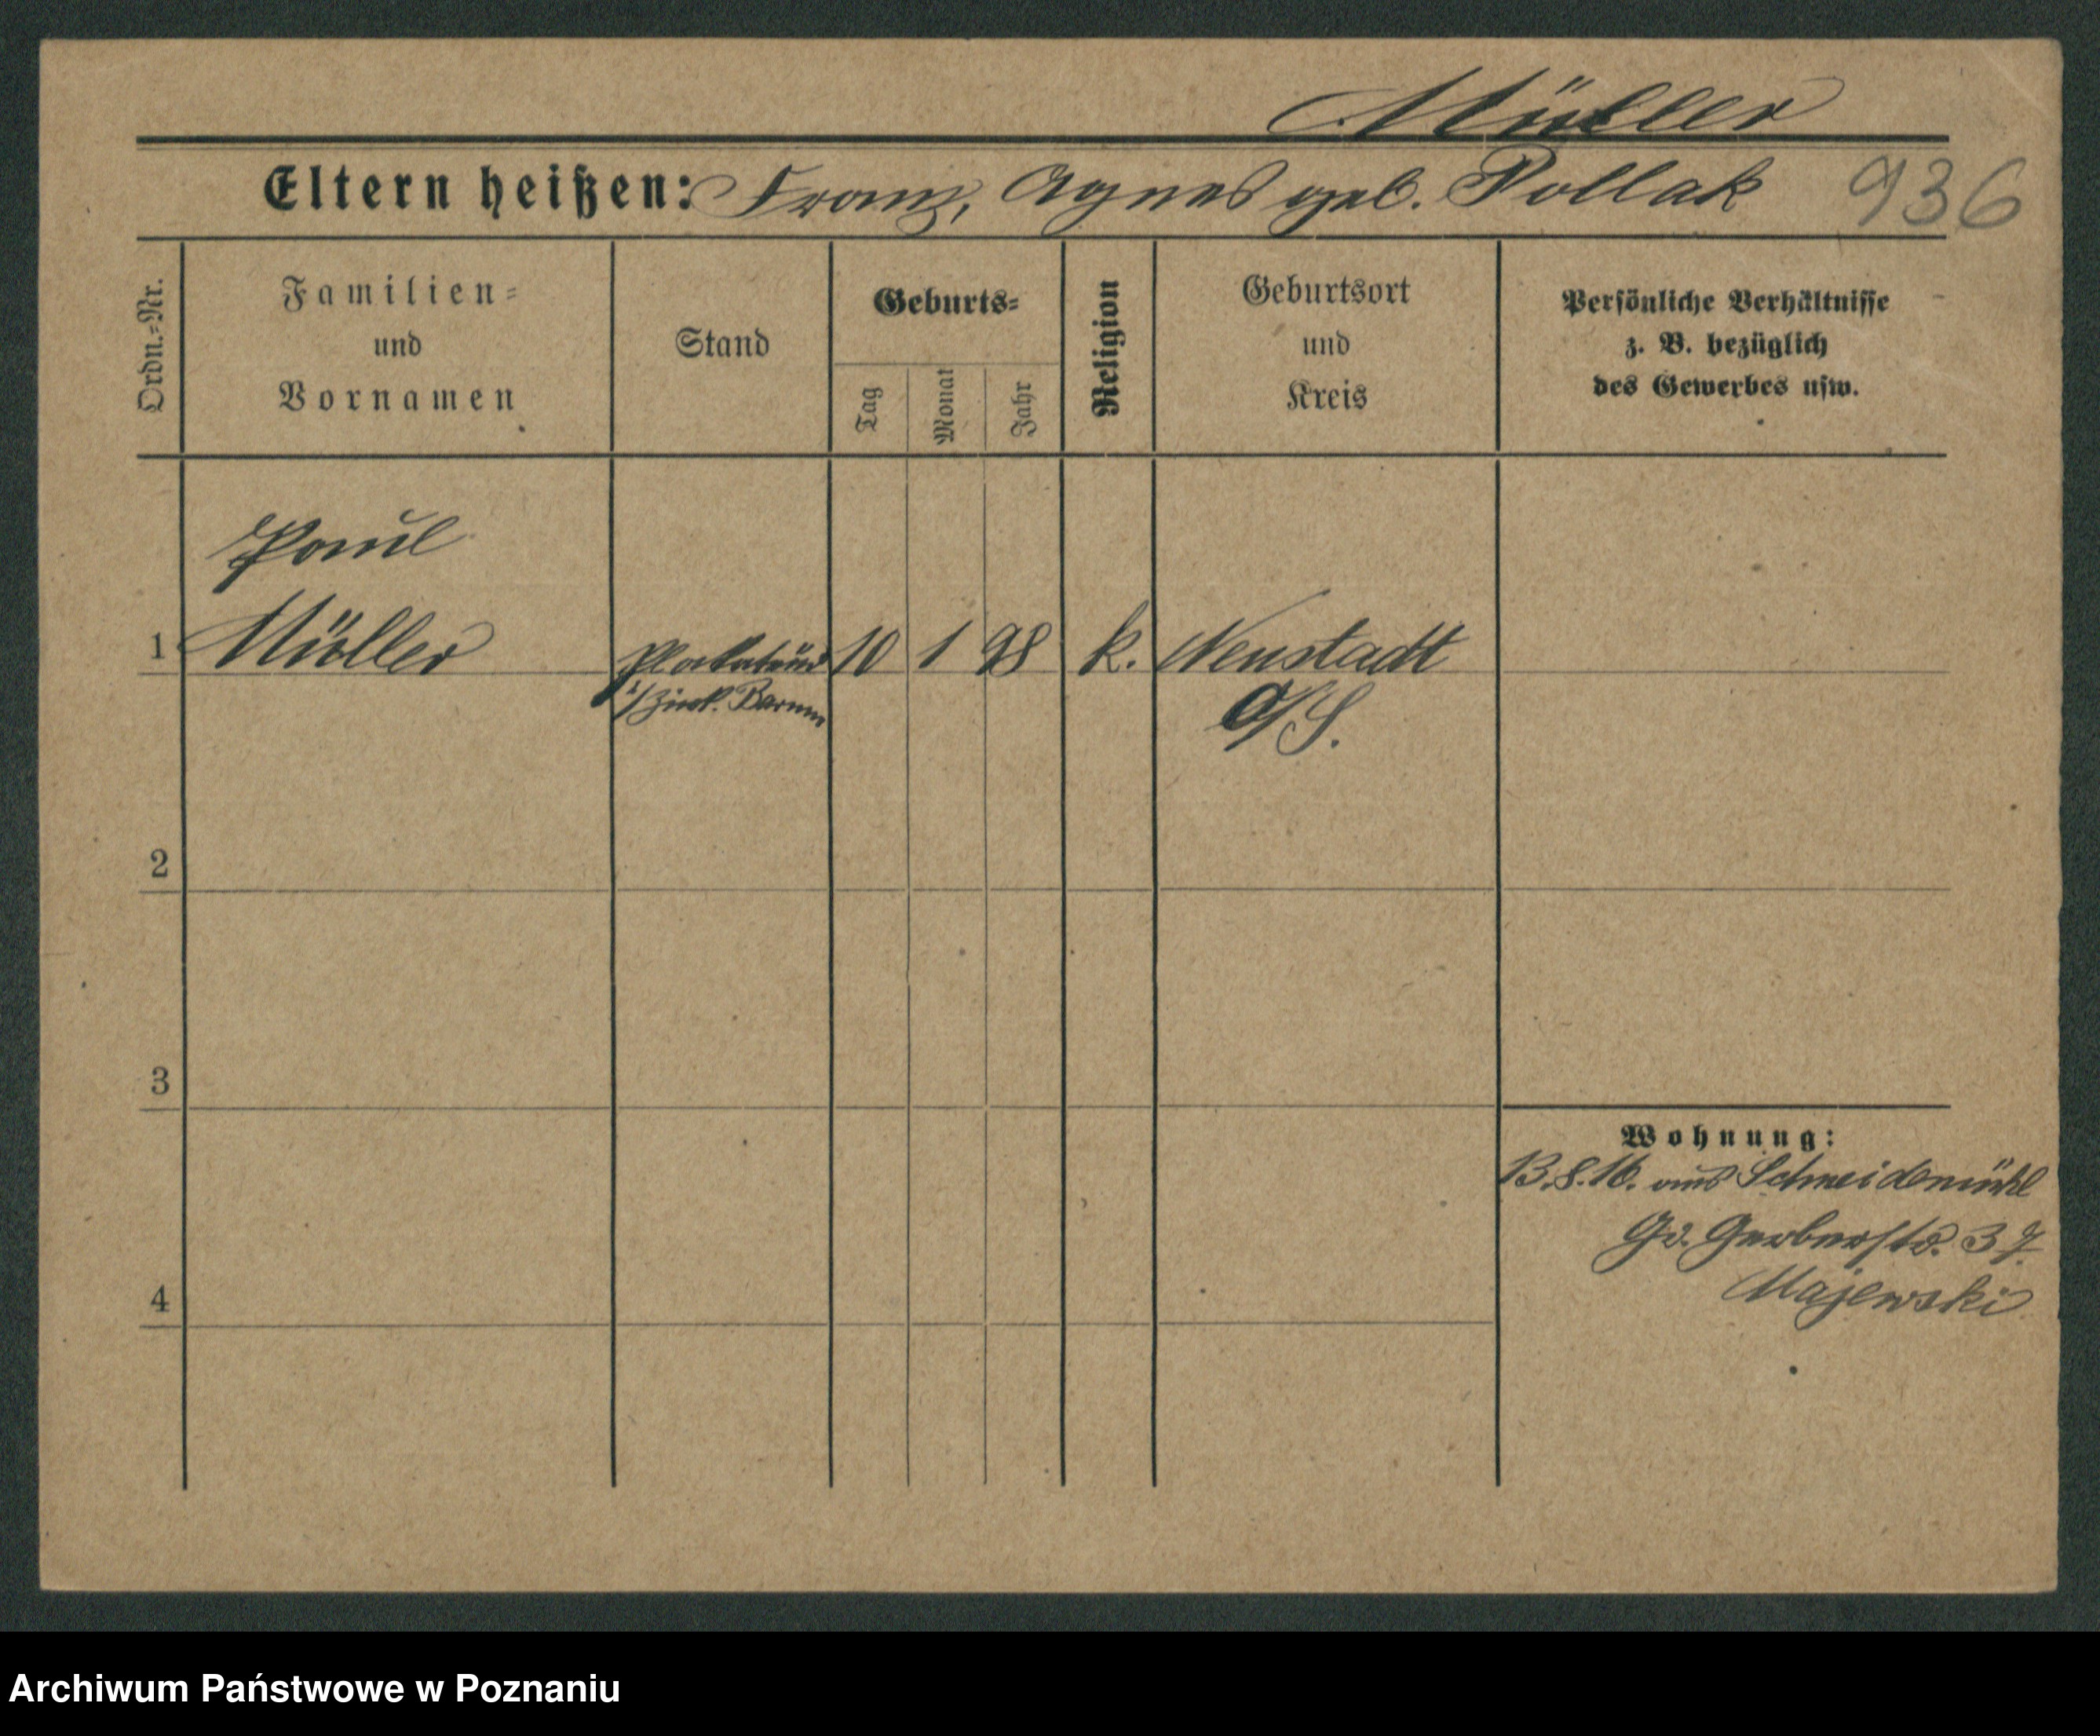 Müller
Eltern heißen: Franz, Agnes geb. Pollak 936
Ordn.=Nr.
Familien=
und
Vornamen
Stand
Geburts=
Tag
Monat
Jahr
Religion
Geburtsort
und
Kreis
Persönliche Verhältnisse
z. B. bezüglich
des Gewerbes usw.
Paul
1 Müller 10 1 98 k. Neustadt
i/Zirk. Barum
O/S.
2
3
4
Wohnung:
13.8.16. aus Schneidemühl
Gr. Gerberstr. 37
Majewski
Archiwum Państwowe w Poznaniu